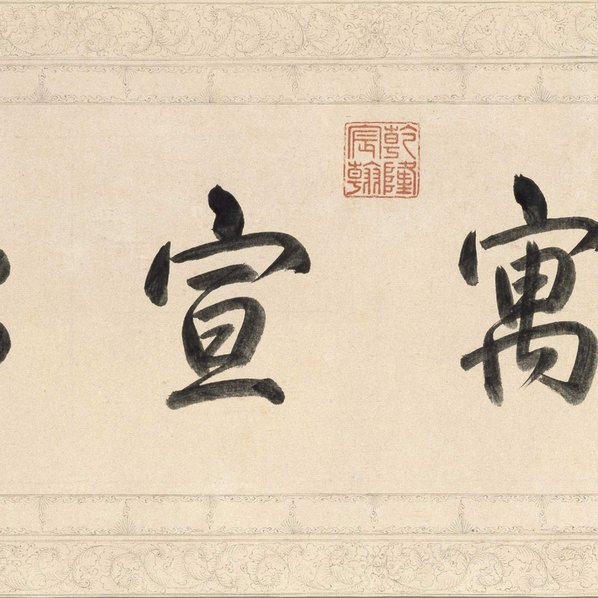 寓宣
乾隆
宸翰